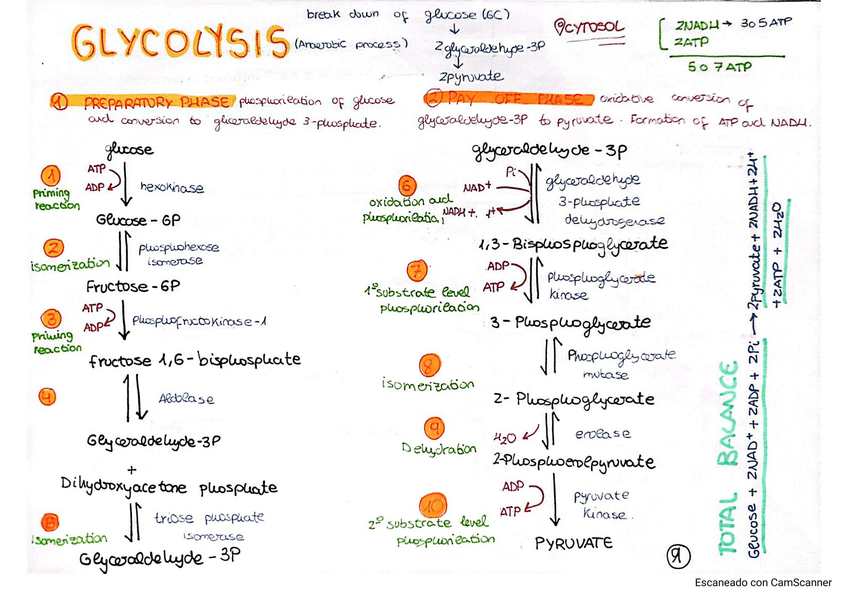 break down of glucose (6C)
GLYCOLYSIS (Anaerobic process)
2 glyceraldehype-3P
2 pyruvate
CYTOSOL
2NADH → 3 o 5 ATP
2ATP
5 o 7 ATP
1 PREPARATORY PHASE phosphorilation of glucose
and conversion to gliceraldehyde 3-phosphate.
2 PAY OFF PHASE oxidative conversion of
glyceraldehyde-3P to pyruvate. Formation of ATP and NADH.
glucose
1
Priming
reaction
ATP
ADP
hexokinase
Glucose - 6P
2
isomerization
phosphohexose
isomerase
Fructose - 6P
3
Priming
reaction
ATP
ADP
Phosphofructokinase-1
fructose 1,6-bisphosphate
4
Aldolase
Glyceraldehyde-3P
+
Dihydroxyacetone phosphate
5
isomerization
triose phosphate
isomerase
Glyceraldehyde - 3P
glyceraldehyde - 3P
6
oxidation and
phosphorilation
Pi
NAD+
NADH +. H+
glyceraldehyde
3-phosphate
dehydrogenase
1,3-Bisphosphoglycerate
7
1º substrate level
phosphorilation
ADP
ATP
Phosphoglycerate
kinase
3- Phosphoglycerate
8
isomerization
Phosphoglycerate
mutase
2- Phosphoglycerate
9
Dehydration
H2O
enolase
2-Phosphoenolpyruvate
10
2º substrate level
phosphorilation
ADP
ATP
pyruvate
kinase.
PYRUVATE
TOTAL BALANCE
Glucose + 2NAD+ + 2ADP + 2Pi → 2Pyruvate + 2NADH + 2H+
+ 2ATP + 2H2O
Я
Escaneado con CamScanner